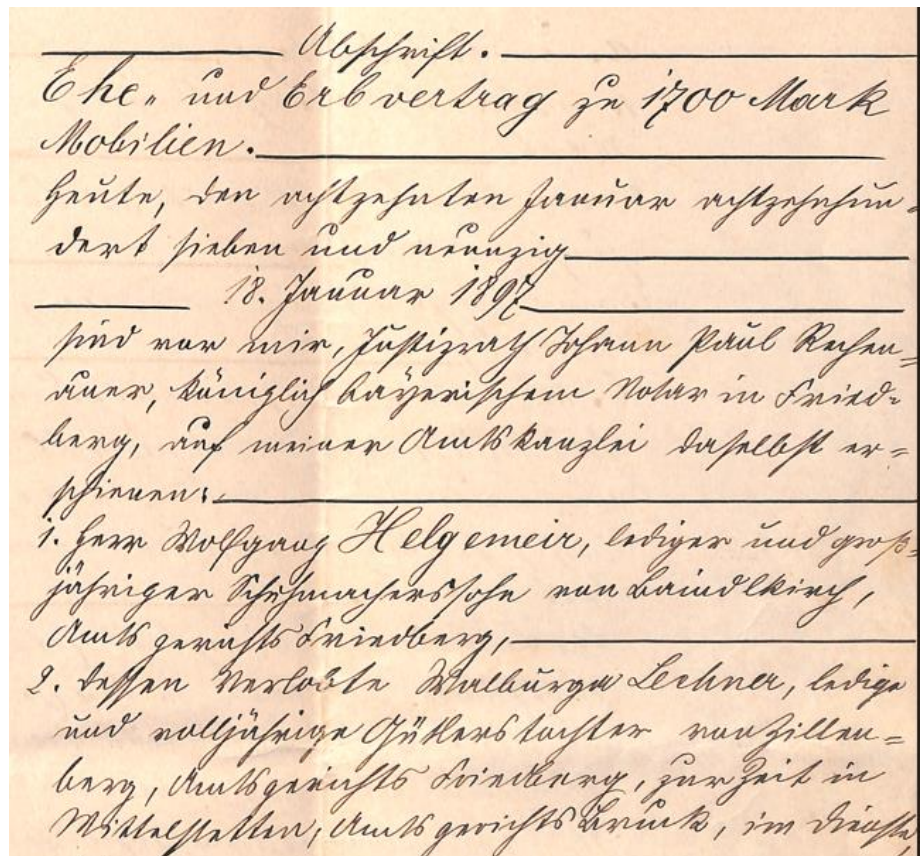 Abschrift.
Ehe- und Erbvertrag zu 1700 Mark
Mobilien.
Heute, den achtzehnten Januar achtzehnhun-
dert sieben und neunzig
18. Januar 1897
sind vor mir, Justizrath Johann Paul Rechen-
auer, königlich bayerischem Notar in Fried-
berg, auf meiner Amtskanzlei daselbst er-
schienen:
1. Herr Wolfgang Helgemeir, lediger und groß-
jähriger Schuhmacherssohn von Baindlkirch,
Amtsgerichts Friedberg,
2. dessen Verlobte Walburga Lechner, ledige
und volljährige Gütlerstochter von Zillen-
berg, Amtsgerichts Friedberg, zur Zeit in
Mittelstetten, Amtsgerichts Bruck, im Dienste,